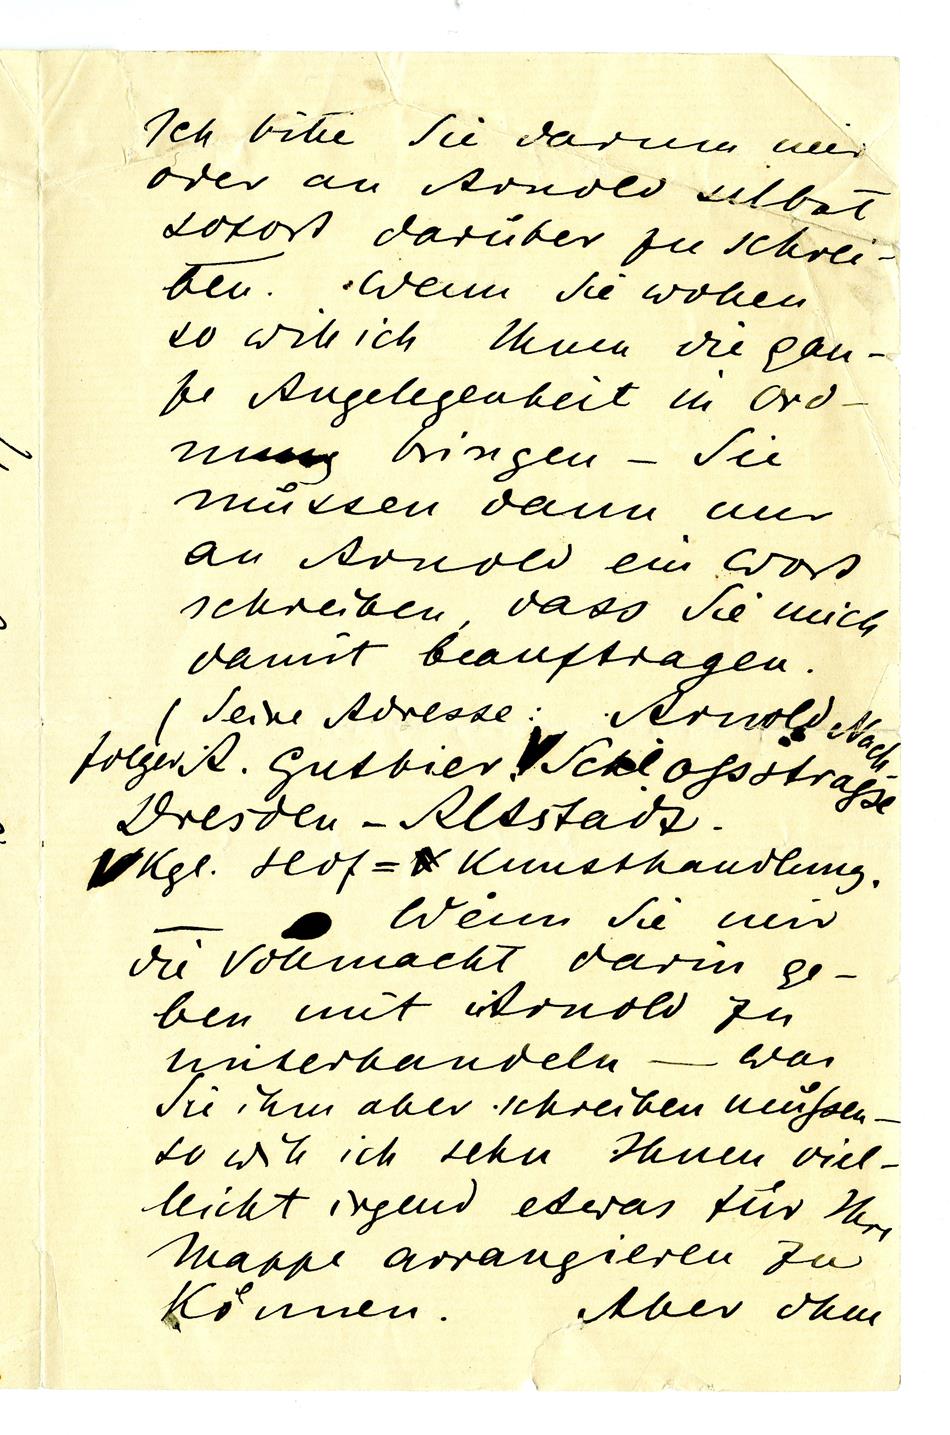 Ich bitte Sie darum mir
oder an Arnold selbst
sofort darüber zu schrei-
ben. Wenn Sie wollen
so will ich Ihnen die gan-
ze Angelegenheit in Ord-
nung bringen – Sie
müssen dann nur
an Arnold ein Wort
schreiben, dass Sie mich
damit beauftragen.
( Seine Adresse: Arnold Nach-
folger A. Gutbier Schlossstrasse
Dresden – Altstadt.
Kgl. Hof= Kunsthandlung.
Wenn Sie mir
die Vollmacht darin ge-
ben mit Arnold zu
unterhandeln — was
Sie ihm aber schreiben müssen –
so will ich sehn Ihnen viel-
leicht irgend etwas für Ihre
Mappe arrangieren zu
können. Aber ohne